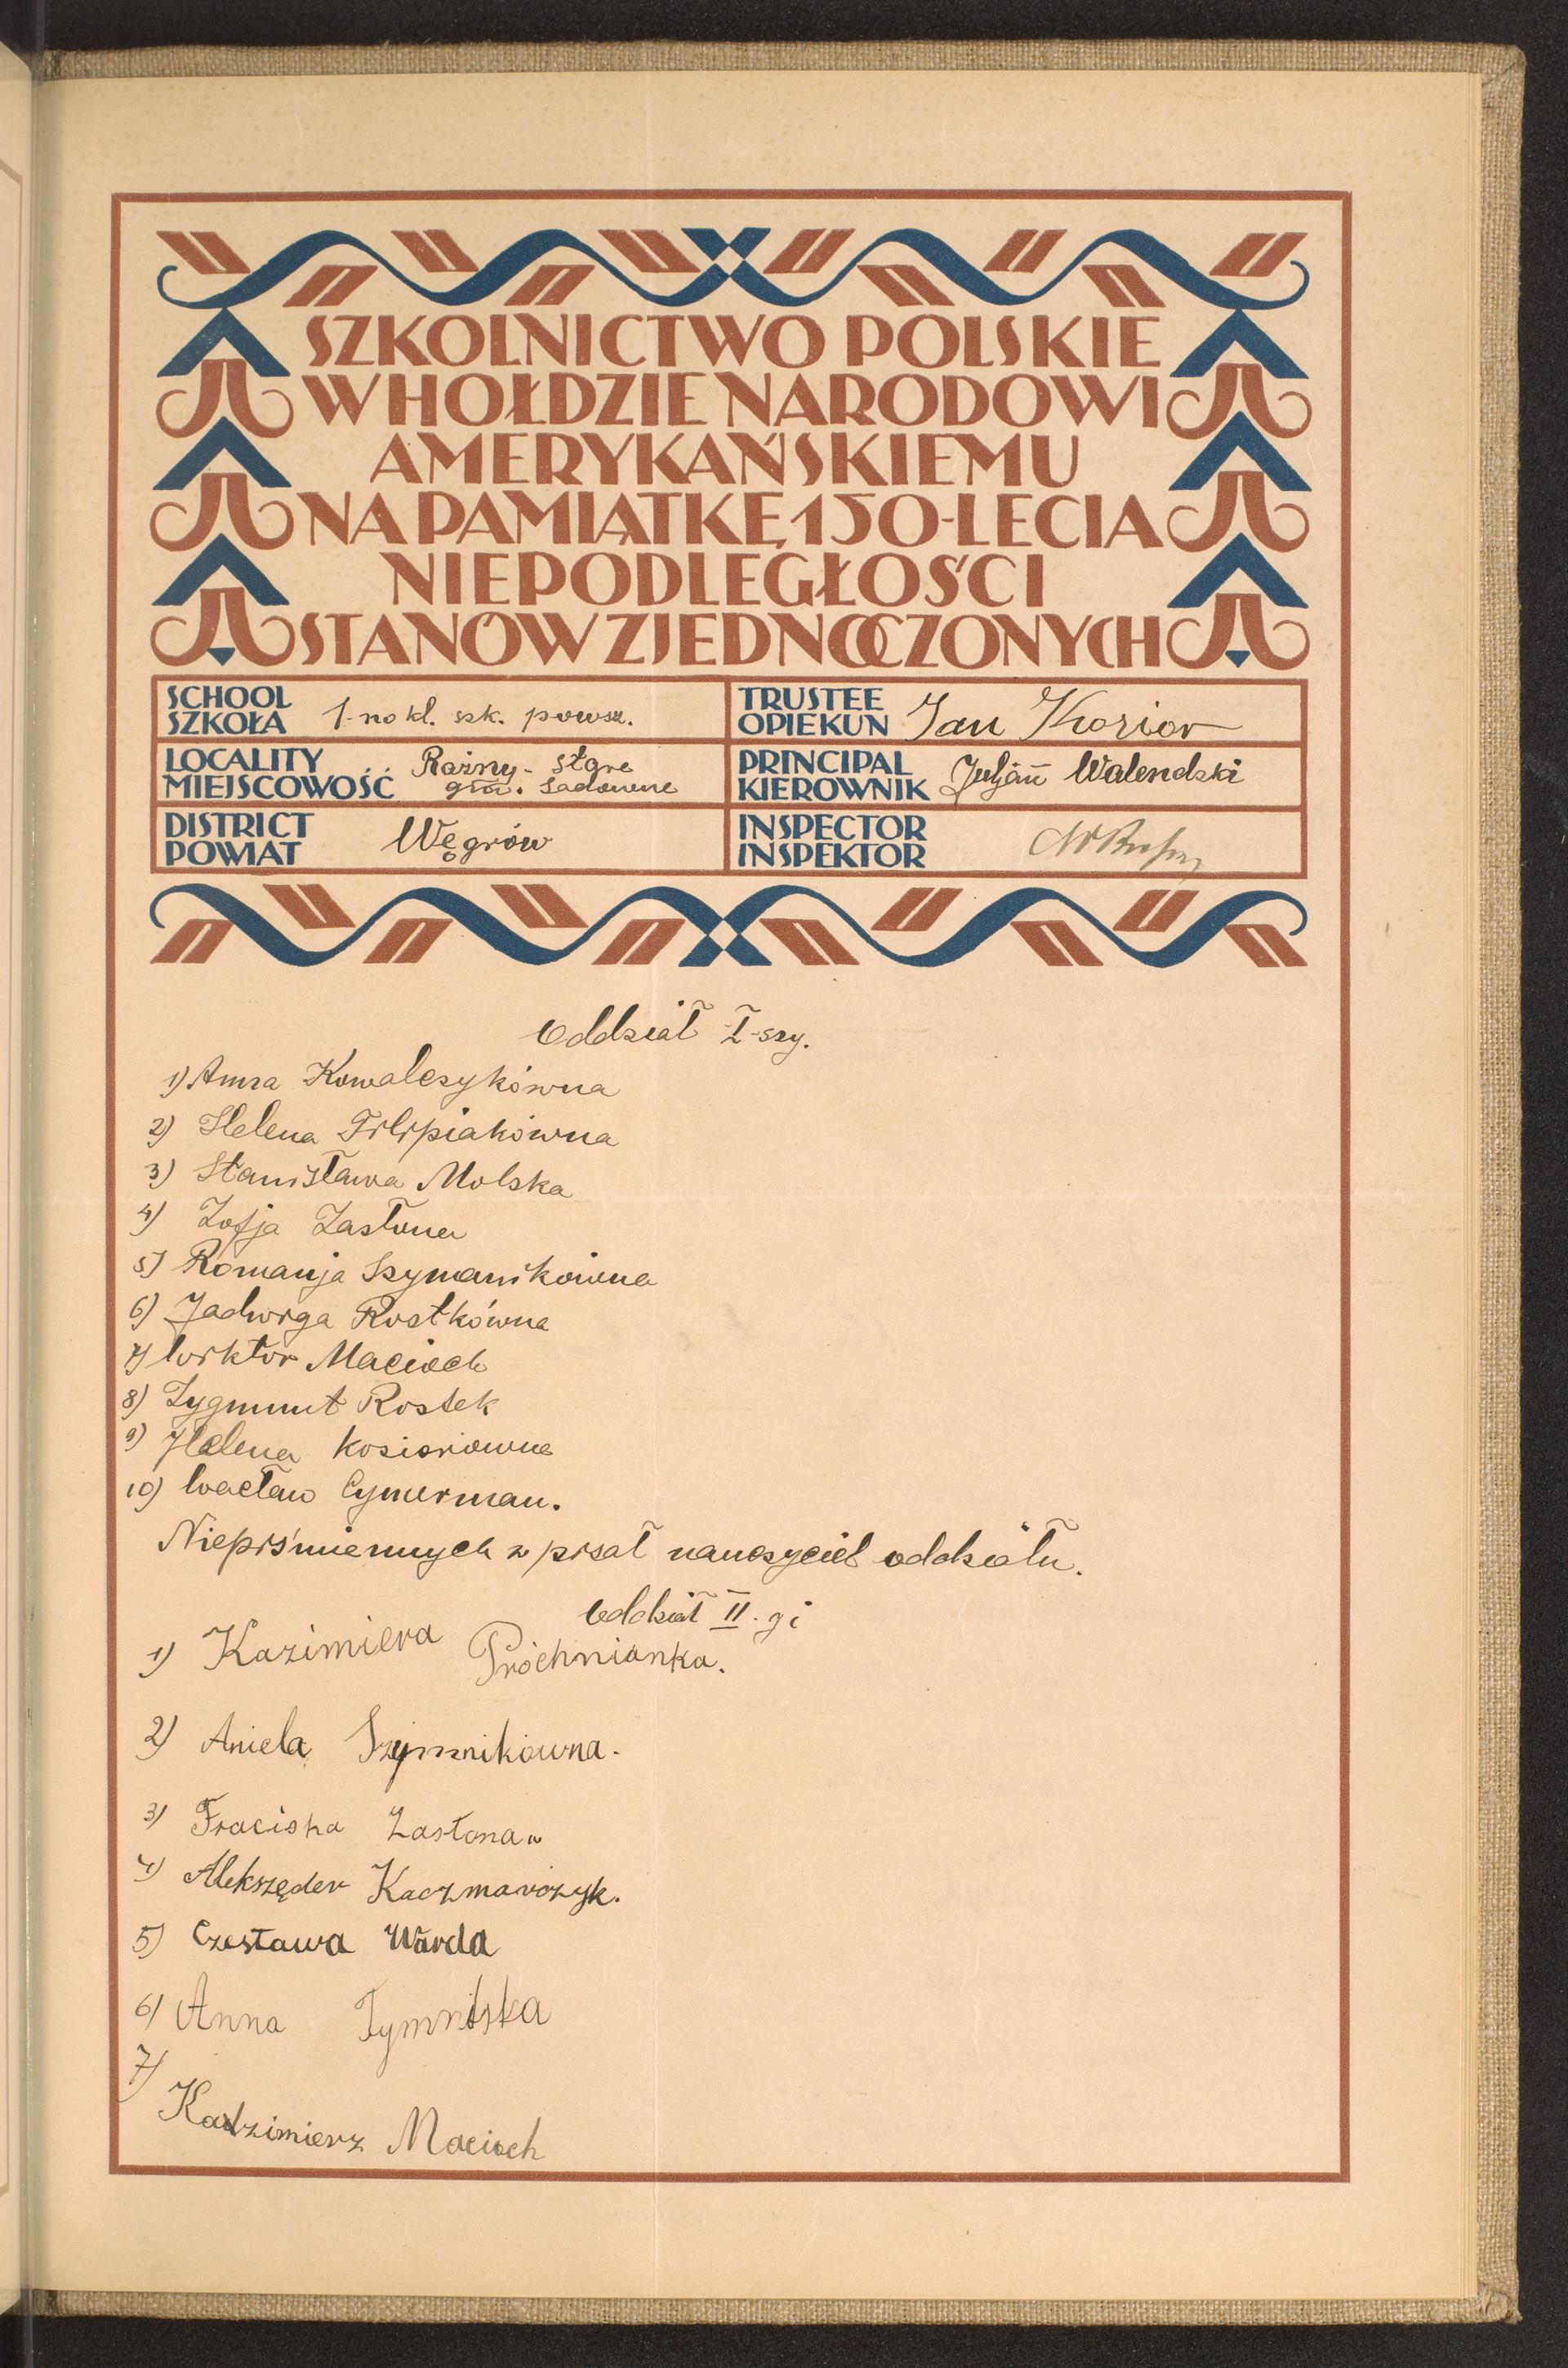 SZKOLNICTWO POLSKIE
W HOŁDZIE NARODOWI
AMERYKAŃSKIEMU
NA PAMIĄTKĘ 150-LECIA
NIEPODLEGŁOŚCI
STANÓW ZJEDNOCZONYCH
SCHOOL
SZKOŁA 1-no kl. szk. powsz.
TRUSTEE
OPIEKUN Jan Kozior
LOCALITY
MIEJSCOWOŚĆ Rażny-Stare
gm. Sadowne
PRINCIPAL
KIEROWNIK Juljan Walendzki
DISTRICT
POWIAT Węgrów
INSPECTOR
INSPEKTOR
Oddział I-szy.
1) Anna Kowalczykówna
2) Helena Filipiakówna
3) Stanisława Molska
4) Zofja Zasłona
5) Romanja Szymanikówna
6) Jadwiga Rostkówna
7) Wiktor Macioch
8) Zygmunt Rostek
9) Helena Kosiorówna
10) Wacław Cymerman.
Niepiśmiennych wpisał nauczyciel oddziału.
Oddział II-gi
1) Kazimiera Próchnianka.
2) Aniela Szymnikówna.
3) Fraciska Zasłona.
4) Alekszęder Kaczmarczyk.
5) Czesława Warda
6) Anna
7)
Kadzimierz Macioch